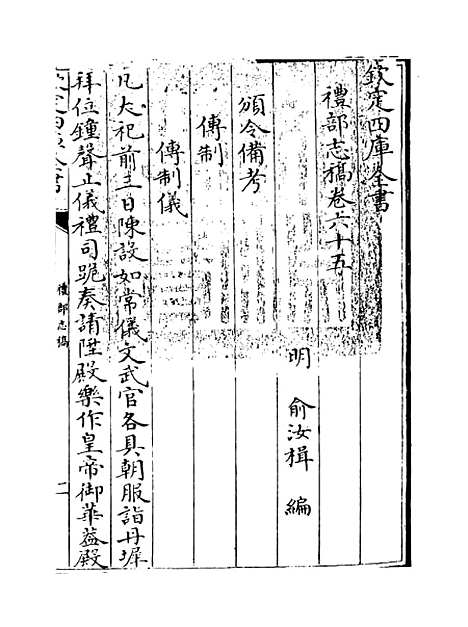 欽定四庫全書
禮部志稿卷六十五
明 俞汝楫 編
頒令備考
傳制
傳制儀
凡大祀前三日陳設如常儀文武官各具朝服詣丹墀
拜位鐘聲止儀禮司跪奏請陞殿樂作皇帝御華葢殿
禮部志稿
二